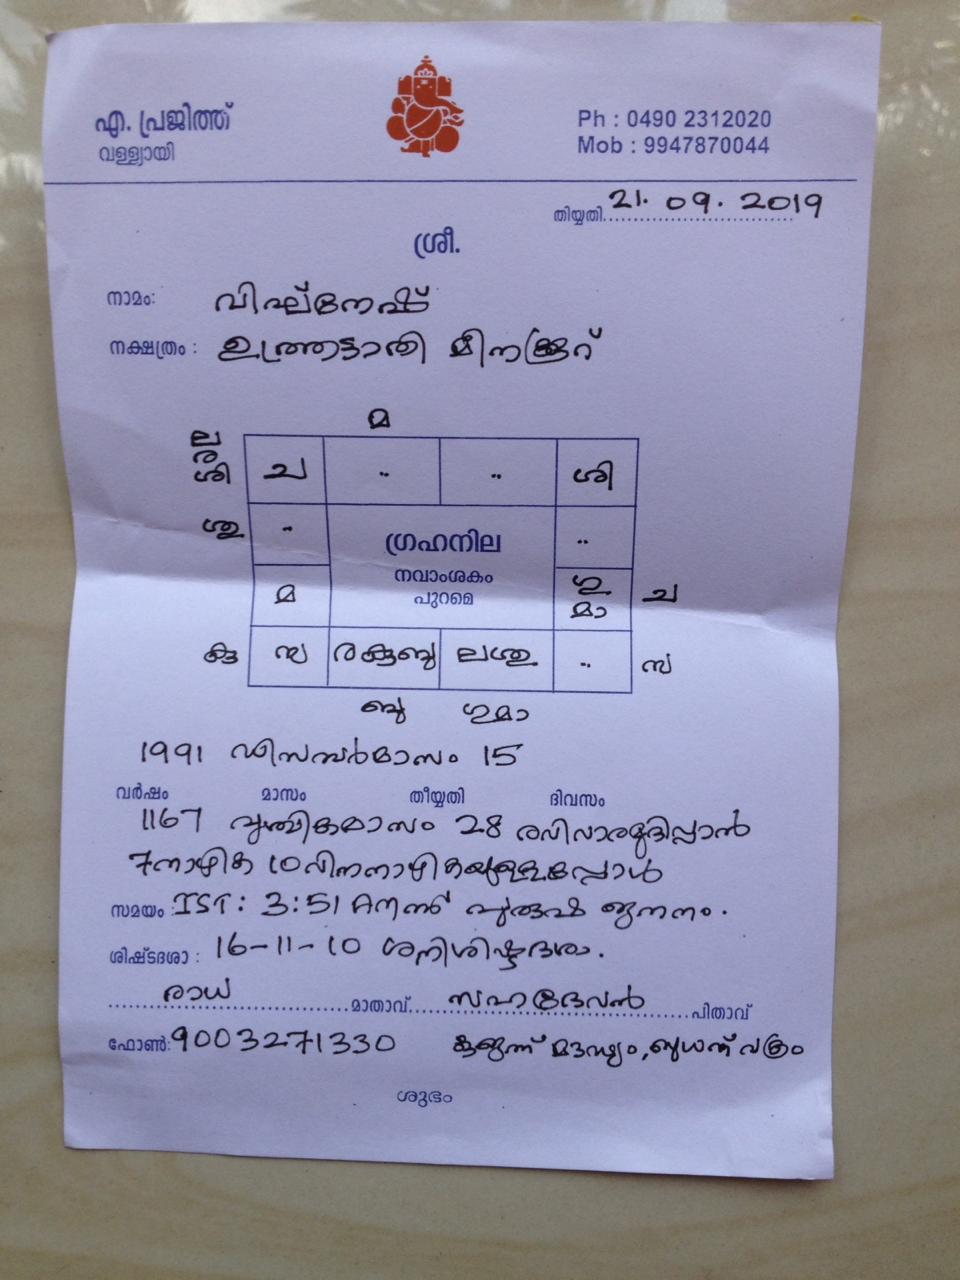 എ. പ്രജിത്ത്
വള്ള്യായി
Ph : 0490 2312020
Mob : 9947870044
തിയ്യതി. 21. 09. 2019
ശ്രീ.
നാമം: വിഘ്നേഷ്
നക്ഷത്രം : ഉത്രട്ടാതി മീനക്കൂറ്
മ
ല ര ശി ച .. .. ശി
ശു .. ഗ്രഹനില ..
നവാംശകം
മ പുറമെ ഗു മാ ച
കു സ രകുബു ലശു .. സ
ബു ഗുമാ
1991 ഡിസമ്പർമാസം 15
വർഷം മാസം തീയ്യതി ദിവസം
1167 വൃശ്ചികമാസം 28 രവിവാരമുദിപ്പാൻ
7നാഴിക 10വിനനാഴികയുള്ളപ്പോൾ
സമയം : IST : 3:51 Amന്ന് പുരുഷ ജനനം.
ശിഷ്ടദശാ : 16-11-10 ശനിശിഷ്ടദശാ.
രാധ മാതാവ് സഹദേവൻ പിതാവ്
ഫോൺ: 9003271330 കുജന്ന് മൗഢ്യം, ബുധന്ന് വക്രം
ശുഭം